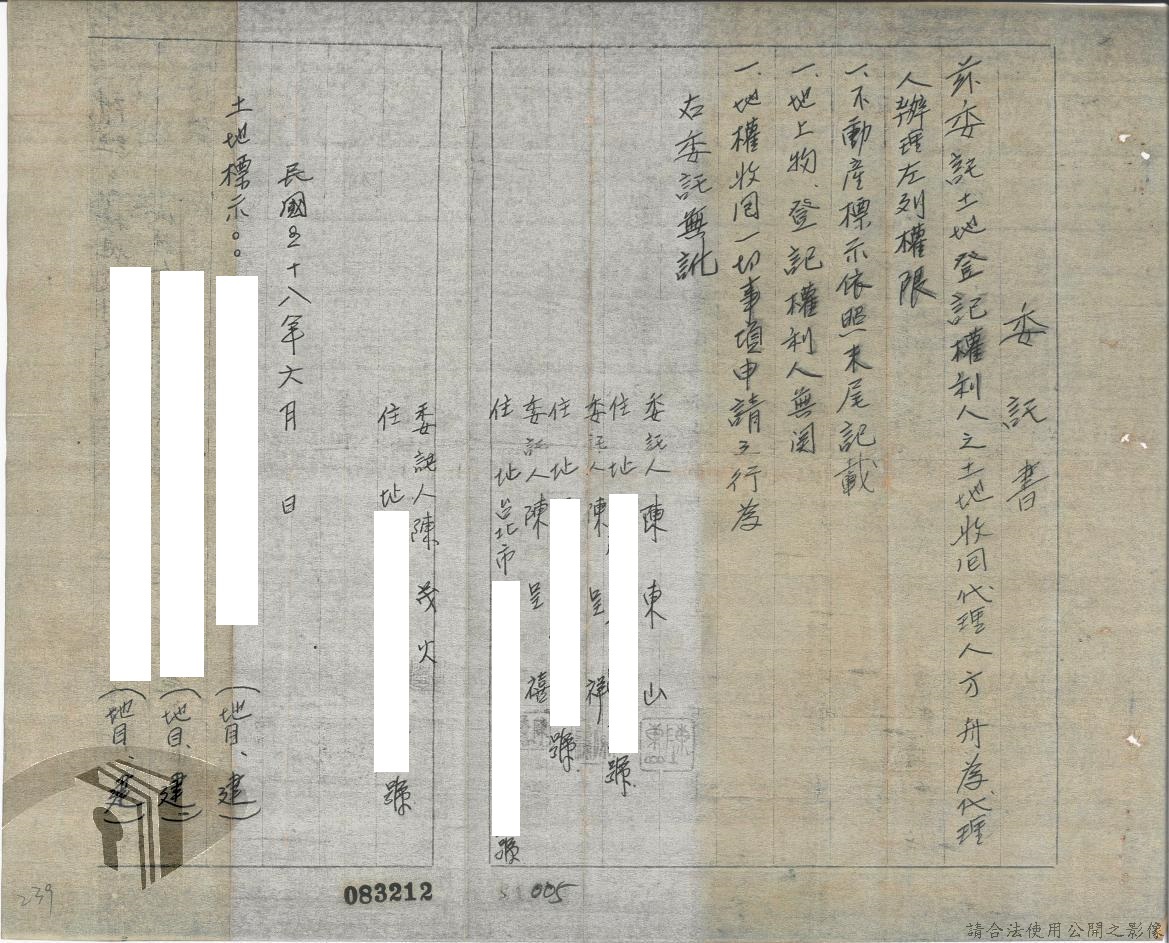 委託書
茲委託土地登記權利人之土地收回代理人方 舟為代理
人辦理左列權限
一、不動產標示依照末尾記載
一、地上物、登記權利人無関
一、地權收囘一切事項申請之行為
右委託無訛
委託人 陳東山
住址 號
委託人 陳呈祥
住址 號
委託人 陳呈禧
住址 台北市 號
委託人 陳茂火
住址 號
民國五十八年六月 日
土地標示。。
(地目、建)
(地目、建)
(地目、建)
239
083212
S1005
請合法使用公開之影像